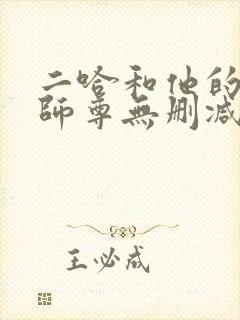 二哈和他的
師尊無删减
王必成